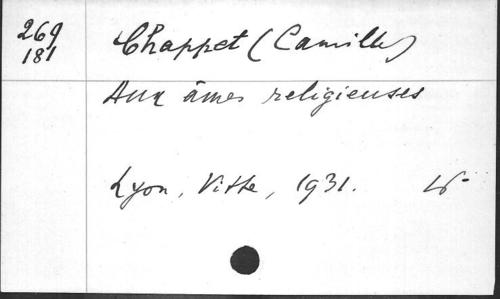 269
181
Chappet (Camille)
Aux âmes religieuses
Lyon, Vitte, 1931.